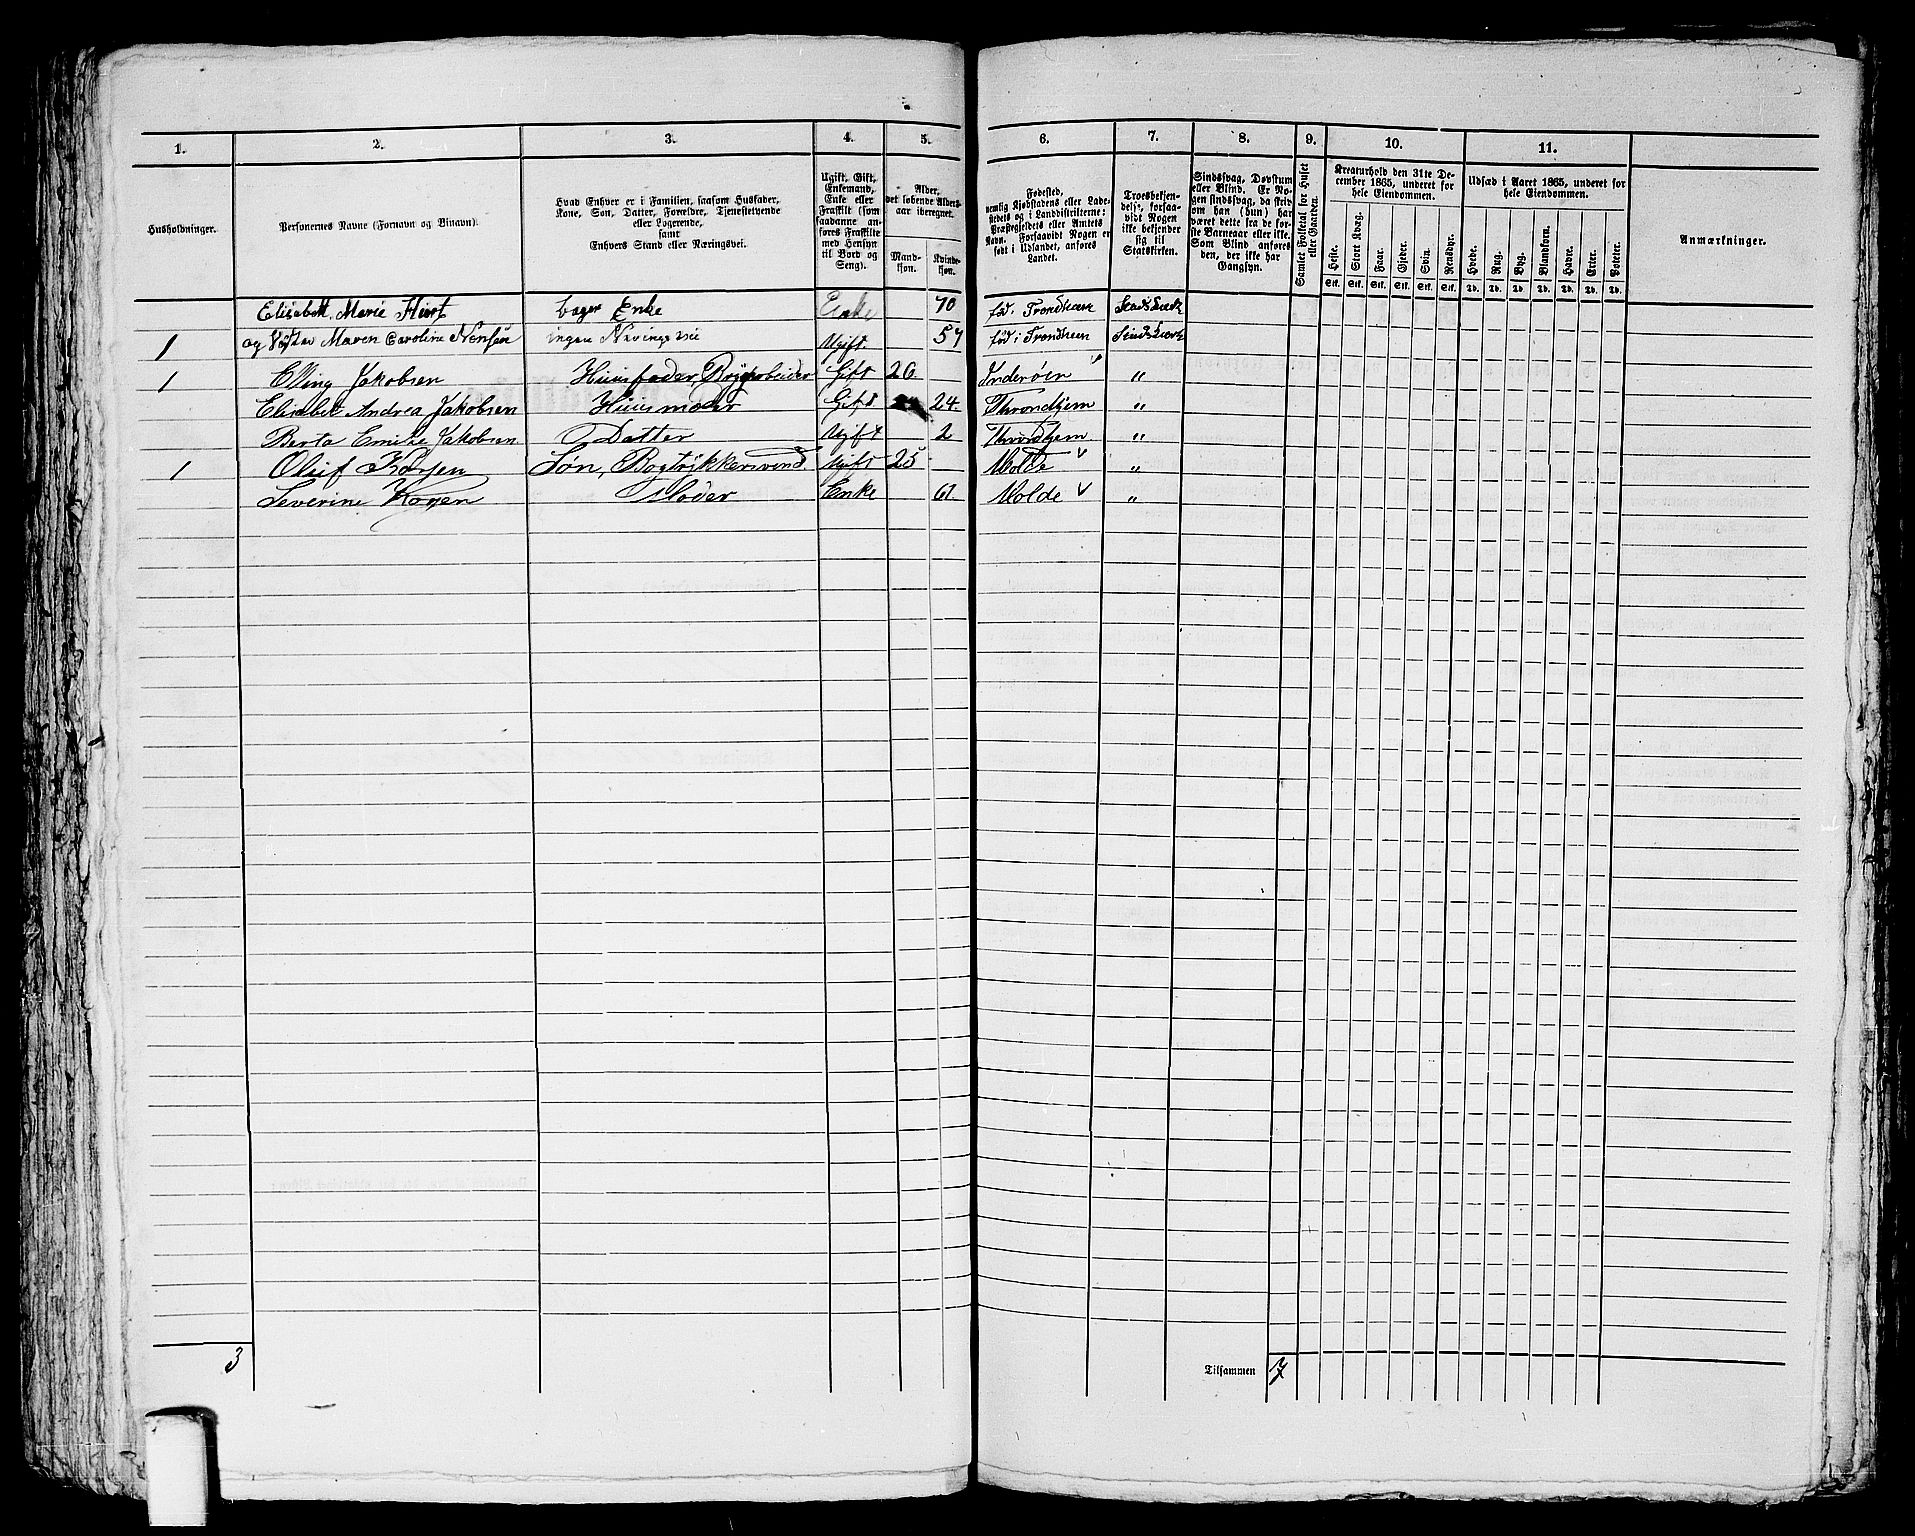 1. 2. 3. 4. 5. 6. 7. 8. 9. 10. 11.
Husholdninger.
Personernes Navne (Fornavn og Binavn).
Hvad Enhver er i Familien, saasom Husfader,
Kone, Søn, Datter, Forældre, Tjenestetyende
eller Logerende,
samt
Enhvers Stand eller Næringsvei.
Ugift, Gift,
Enkemand,
Enke eller
Fraskilt (som
saadanne an-
føres Fraskilte
med Hensyn
til Bord og
Seng).
Alder,
det løbende Alders-
aar iberegnet.
Mand-
kjøn.
Kvinde-
kjøn.
Fødested,
nemlig Kjøbstadens eller Lade-
stedets og i Landdistrikterne:
Præstegjeldets eller Amtets
Navn. Forsaavidt Nogen er
født i Udlandet, anføres
Landet.
Troesbekjen-
delse, forsaa-
vidt Nogen
ikke bekjender
sig til
Statskirken.
Sindssvag, Døvstum
eller Blind. Er No-
gen sindssvag, da skriv
om han (hun) har
været dette fra de før-
ste Barneaar eller ikke.
Som Blind anføres
den, der ikke har
Gangsyn.
Samlet Folketal for Huset
eller Gaarden.
Kreaturhold den 31te De-
cember 1865, underet for
hele Eiendommen.
Heste. Stort Kvæg. Faar. Gjeder. Svin. Rensdyr.
Stk. Stk. Stk. Stk. Stk. Stk.
Udsæd i Aaret 1865, underet for
hele Eiendommen.
Hvede. Rug. Byg. Blandkorn. Havre. Erter. Poteter.
Td. Td. Td. Td. Td. Td. Td.
Anmærkninger.
Elisabeth Marie Enke Enke 70 fød i Trondheim
1 og Maren Caroline Jensen ingen Ugift 57 fød i Trondheim
1 Elling Jakobsen Huusfader, Gift 26. Inderøen "
Elisabet Andrea Jakobsen Huusmoder Gift 24. Throndhjem "
Berta Emilie Jakobsen Datter Ugift 2 Throndhjem "
1 Oluf Søn, Bogtrykkersvend Ugift 25 Molde "
Severine Moder Enke 61. Molde "
3 Tilsammen 7